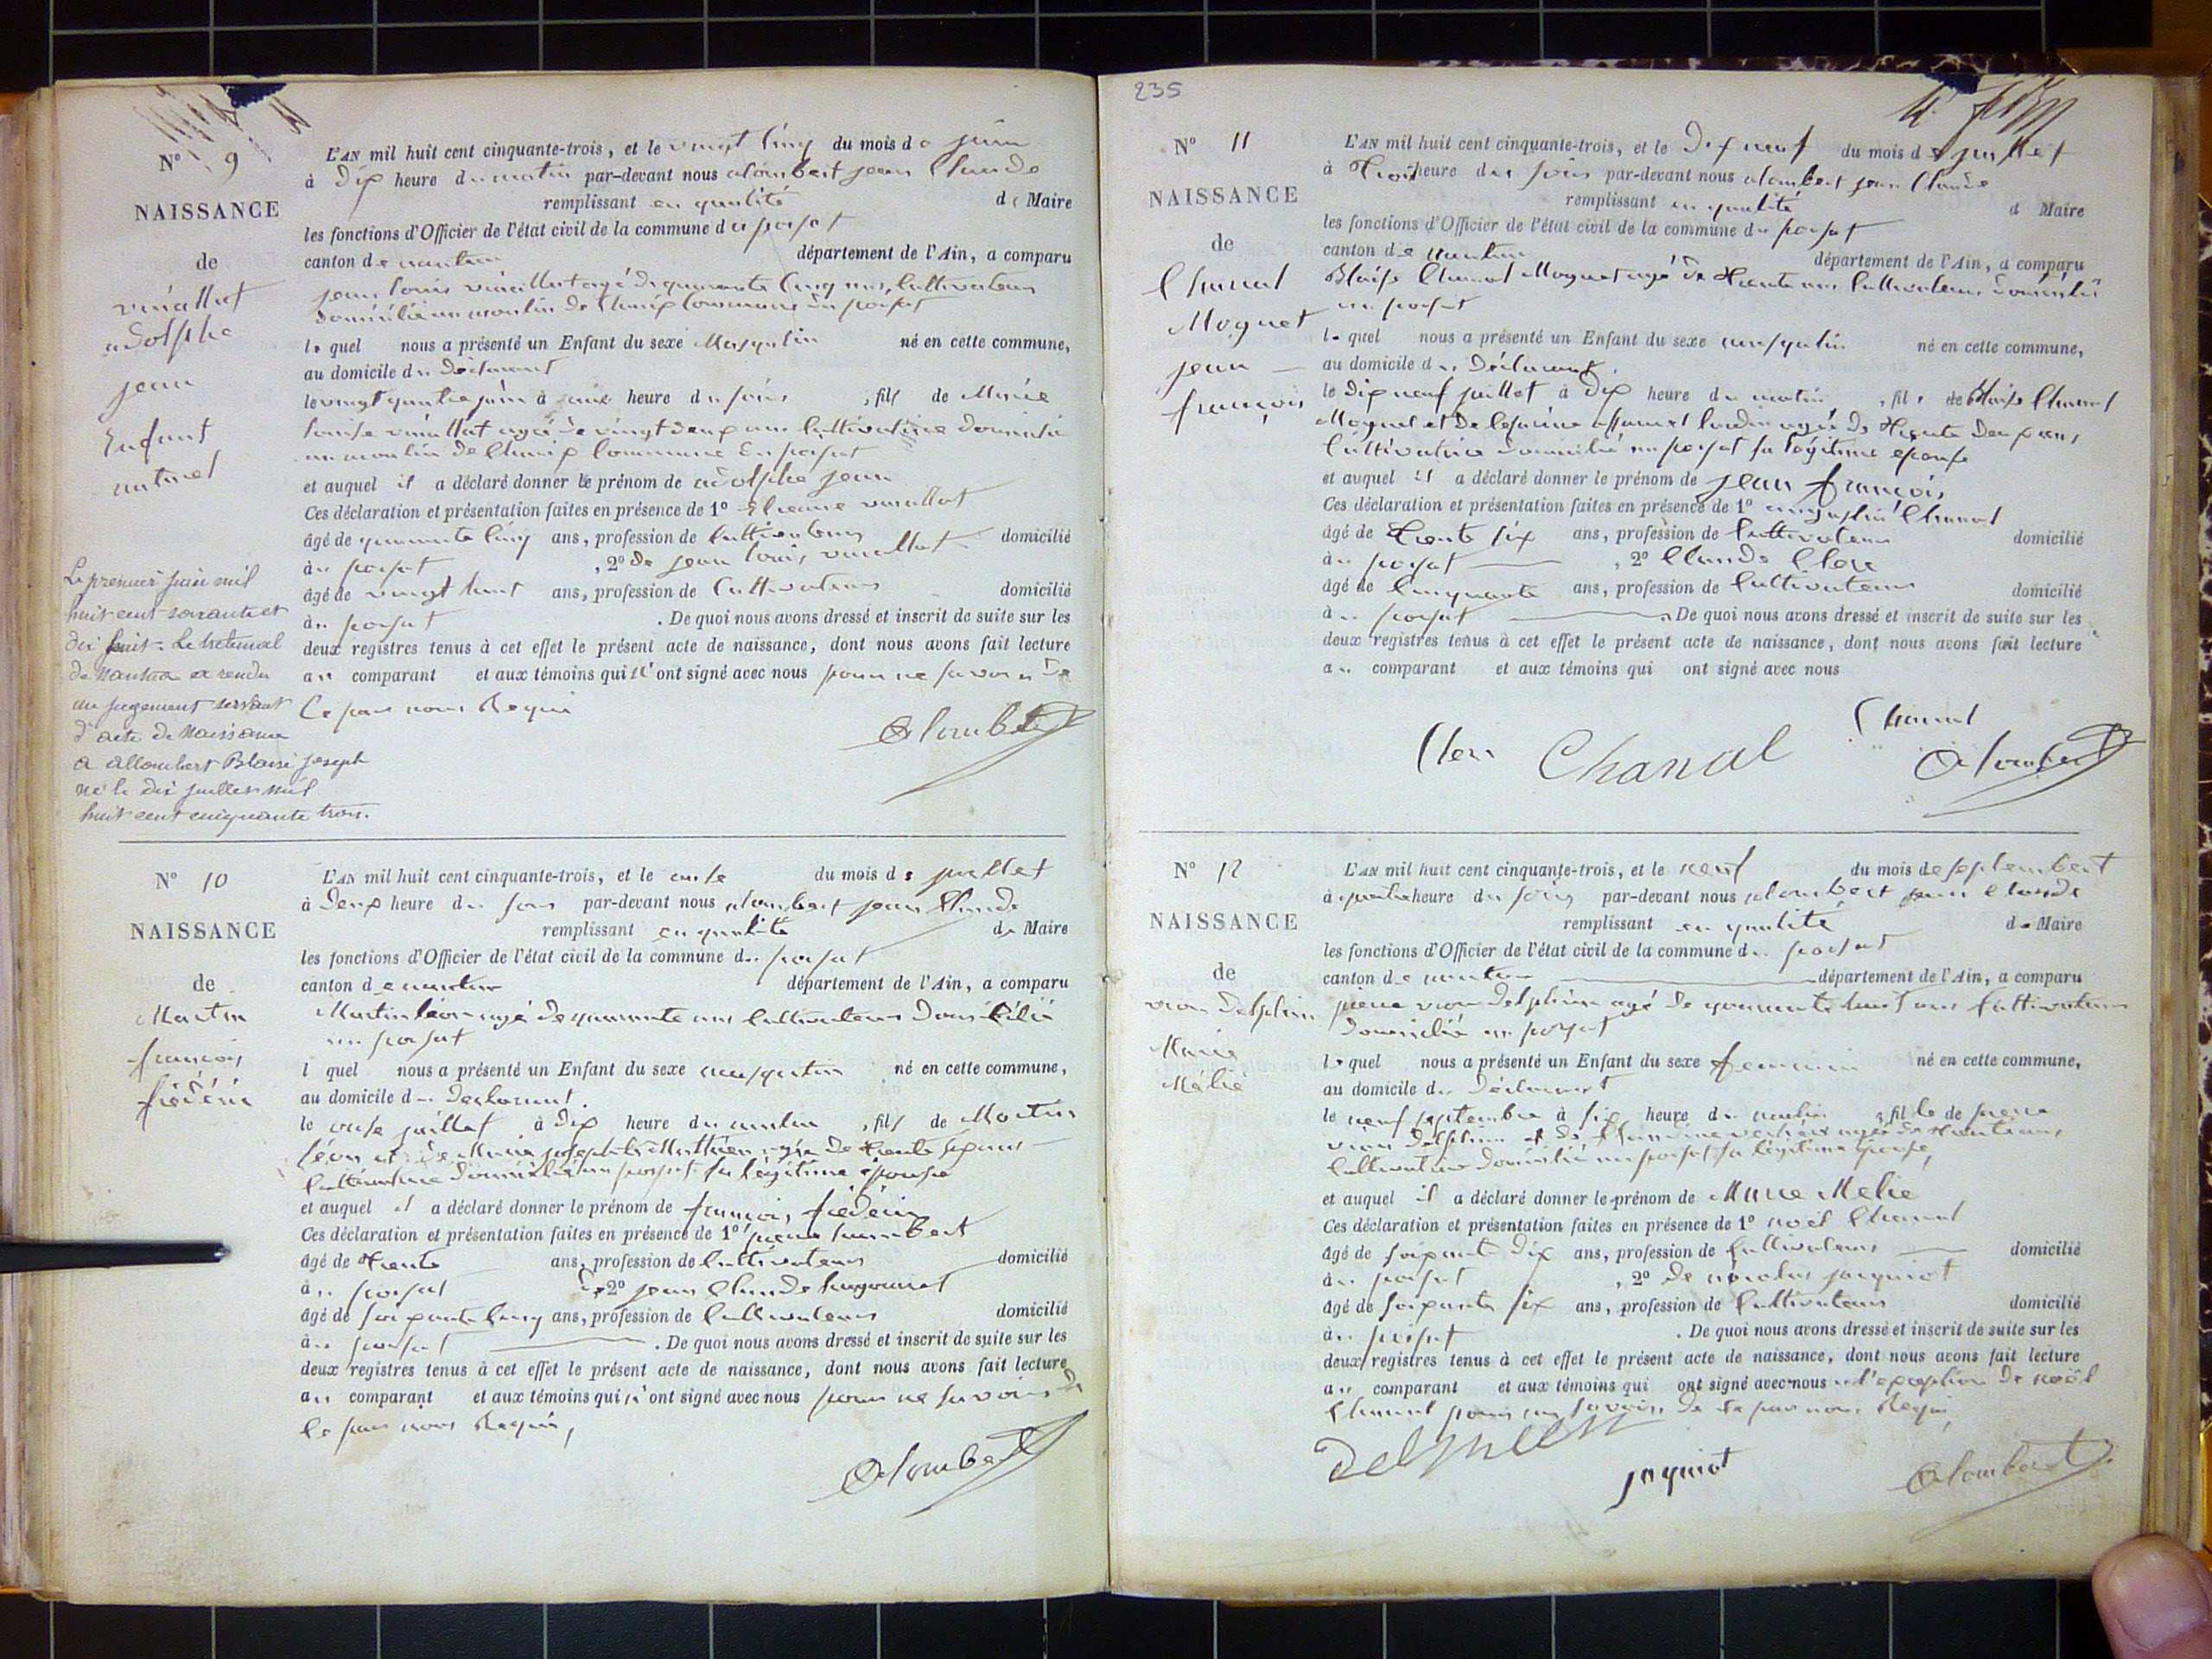 N° 9
NAISSANCE
de
vuaillat
adolphe
jean
Enfant
naturel
L'AN mil huit cent cinquante-trois, et le vingt cinq du mois de juin
à dix heure du matin par-devant nous alombert jean Claude
remplissant en qualité de Maire
les fonctions d'Officier de l'état civil de la commune du
canton de nantua département de l'Ain, a comparu
jean louis vuaillat agé de quarante cinq ans, Cultivateur
domicilié au moulin de commune du
le quel nous a présenté un Enfant du sexe Masqulin né en cette commune,
au domicile du declarant
le vingt quatre juin à heure du soir , fils de Marie
louise vuaillat agée de vingt deux ans Cultivatrice domicilié
au moulin de commune du
et auquel il a déclaré donner le prénom de adolphe jean
Ces déclaration et présentation faites en présence de 1° vuaillat
âgé de quarante cinq ans, profession de cultivateur domicilié
au , 2° de jean louis vuaillat
âgé de vingt huit ans, profession de Cultivateur domicilié
au . De quoi nous avons dressé et inscrit de suite sur les
deux registres tenus à cet effet le présent acte de naissance, dont nous avons fait lecture
au comparant et aux témoins qui n'ont signé avec nous pour ne savoir de
Ce par nous Requi
Alombert
Le premier juin mil
huit cent soixante et
dix huit. Le tribunal
de Nantua a rendu
un jugement servant
d'acte de Naissance
à Allombert Blaise joseph
né le dix juillet mil
huit cent cinquante trois.
N° 10
NAISSANCE
de
Martin
françois
fréderic
L'AN mil huit cent cinquante-trois, et le onse du mois de juillet
à deux heure du soir par-devant nous alombert jean Claude
remplissant en qualité de Maire
les fonctions d'Officier de l'état civil de la commune du
canton de nantua département de l'Ain, a comparu
Martin léon agé de quarante ans Cultivateur domicilié
au
l quel nous a présenté un Enfant du sexe masqulin né en cette commune,
au domicile du declarant
le onse juillet à dix heure du matin , fils de Martin
léon et de Marie josephte Mathieu agée de trente ans
Cultivatrice domicilié au sa légitime épouse
et auquel il a déclaré donner le prénom de françois fréderic
Ces déclaration et présentation faites en présence de 1° humbert
âgé de trente ans, profession de Cultivateur domicilié
au de 2° jean Claude
âgé de soixante cinq ans, profession de Cultivateur domicilié
au . De quoi nous avons dressé et inscrit de suite sur les
deux registres tenus à cet effet le présent acte de naissance, dont nous avons fait lecture
au comparant et aux témoins qui n'ont signé avec nous pour ne savoir de
Ce par nous Requis,
Alombert
235
N° 11
NAISSANCE
de
Chanal
Moguet
jean
françois
L'AN mil huit cent cinquante-trois, et le Dix neuf du mois de juillet
à trois heure du soir par-devant nous alombert jean Claude
remplissant en qualité d Maire
les fonctions d'Officier de l'état civil de la commune du
canton de nantua département de l'Ain, a comparu
Blaise Chanal Moguet agé de trente ans Cultivateur domicilié
au
le quel nous a présenté un Enfant du sexe masqulin né en cette commune,
au domicile du Declarant
le dix neuf juillet à Dix heure du matin , fils de Blaise Chanal
Moguet et de agée de trente deux ans
Cultivatrice domicilié au sa légitime épouse
et auquel il a déclaré donner le prénom de jean françois
Ces déclaration et présentation faites en présence de 1° augustin Chanal
âgé de trente six ans, profession de Cultivateur domicilié
au , 2° Claude Clerc
âgé de Cinquante ans, profession de Cultivateur domicilié
au . De quoi nous avons dressé et inscrit de suite sur les
deux registres tenus à cet effet le présent acte de naissance, dont nous avons fait lecture
au comparant et aux témoins qui ont signé avec nous
Chanal
Clerc Chanal Alombert
N° 12
NAISSANCE
de
Marie
Mélie
L'AN mil huit cent cinquante-trois, et le neuf du mois de septembert
à quatre heure du soir par-devant nous alombert jean Claude
remplissant en qualité de Maire
les fonctions d'Officier de l'état civil de la commune du
canton de nantua département de l'Ain, a comparu
agé de quarante huit ans Cultivateur
domicilié au
le quel nous a présenté un Enfant du sexe feminin né en cette commune,
au domicile du déclarant
le neuf septembre à six heure du matin , fille de pierre
agée de trente ans
Cultivatrice domicilié au sa légitime épouse,
et auquel il a déclaré donner le prénom de Marie Melie
Ces déclaration et présentation faites en présence de 1° noël Chanal
âgé de soixante dix ans, profession de Cultivateur domicilié
au , 2° de nicolas jaquiot
âgé de soixante six ans, profession de Cultivateur domicilié
au . De quoi nous avons dressé et inscrit de suite sur les
deux registres tenus à cet effet le présent acte de naissance, dont nous avons fait lecture
au comparant et aux témoins qui ont signé avec nous a l'exception de noël
Chanal pour ne savoir, de Ce par nous Requi
jaquiot
Alombert